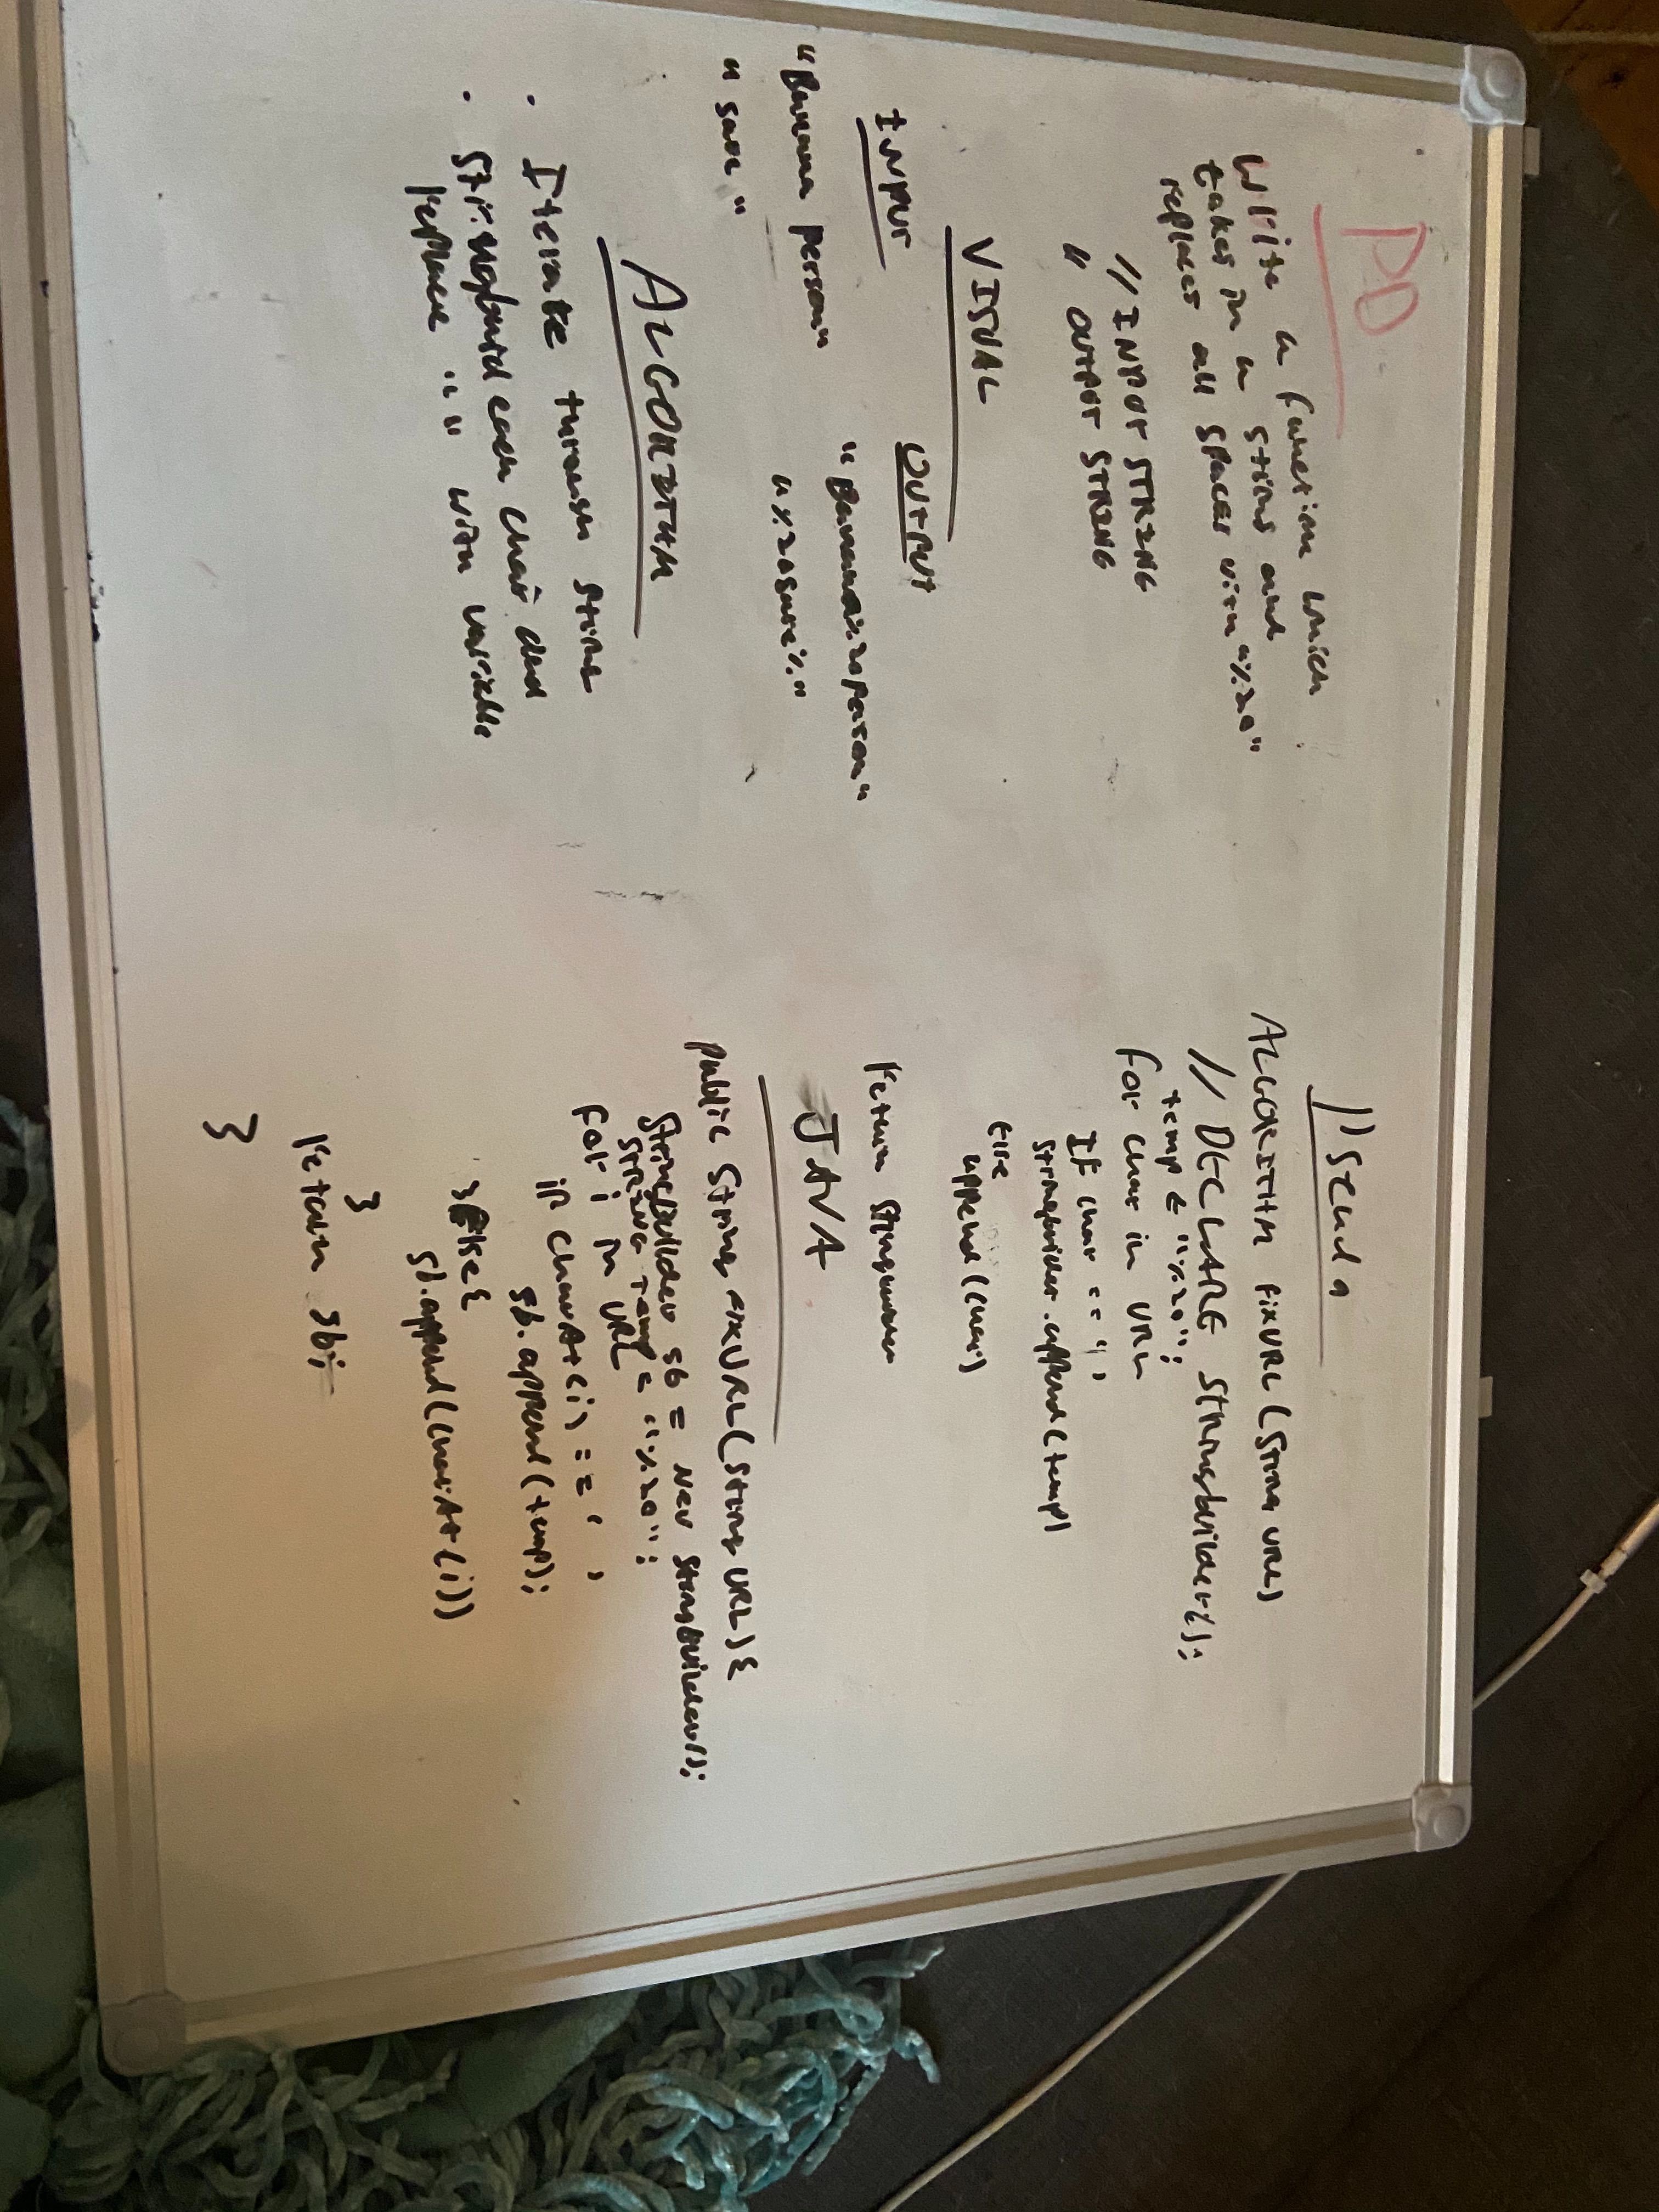 PD
Write a function which
takes in a string and
replaces all spaces with "%20"
// INPUT STRING
" OUTPUT STRING
VISUAL
INPUT OUTPUT
"Banana person" "Banana%20person"
" save " "%20save%"
ALGORITHM
• Iterate through string
• Stringbuild each char and
replace " " with variable
Pseudo
ALGORITHM fixURL(String URL)
// DECLARE Stringbuilder();
temp ← "%20";
for char in URL
If char == ' '
Stringbuilder.append(temp)
Else
append(char)
return Stringbuilder
JAVA
public String fixURL(String URL){
StringBuilder sb = new StringBuilder();
STRING temp = "%20";
for i in URL
if charAt(i) == ' '
sb.append(temp);
}else{
sb.append(charAt(i))
}
return sb;
}